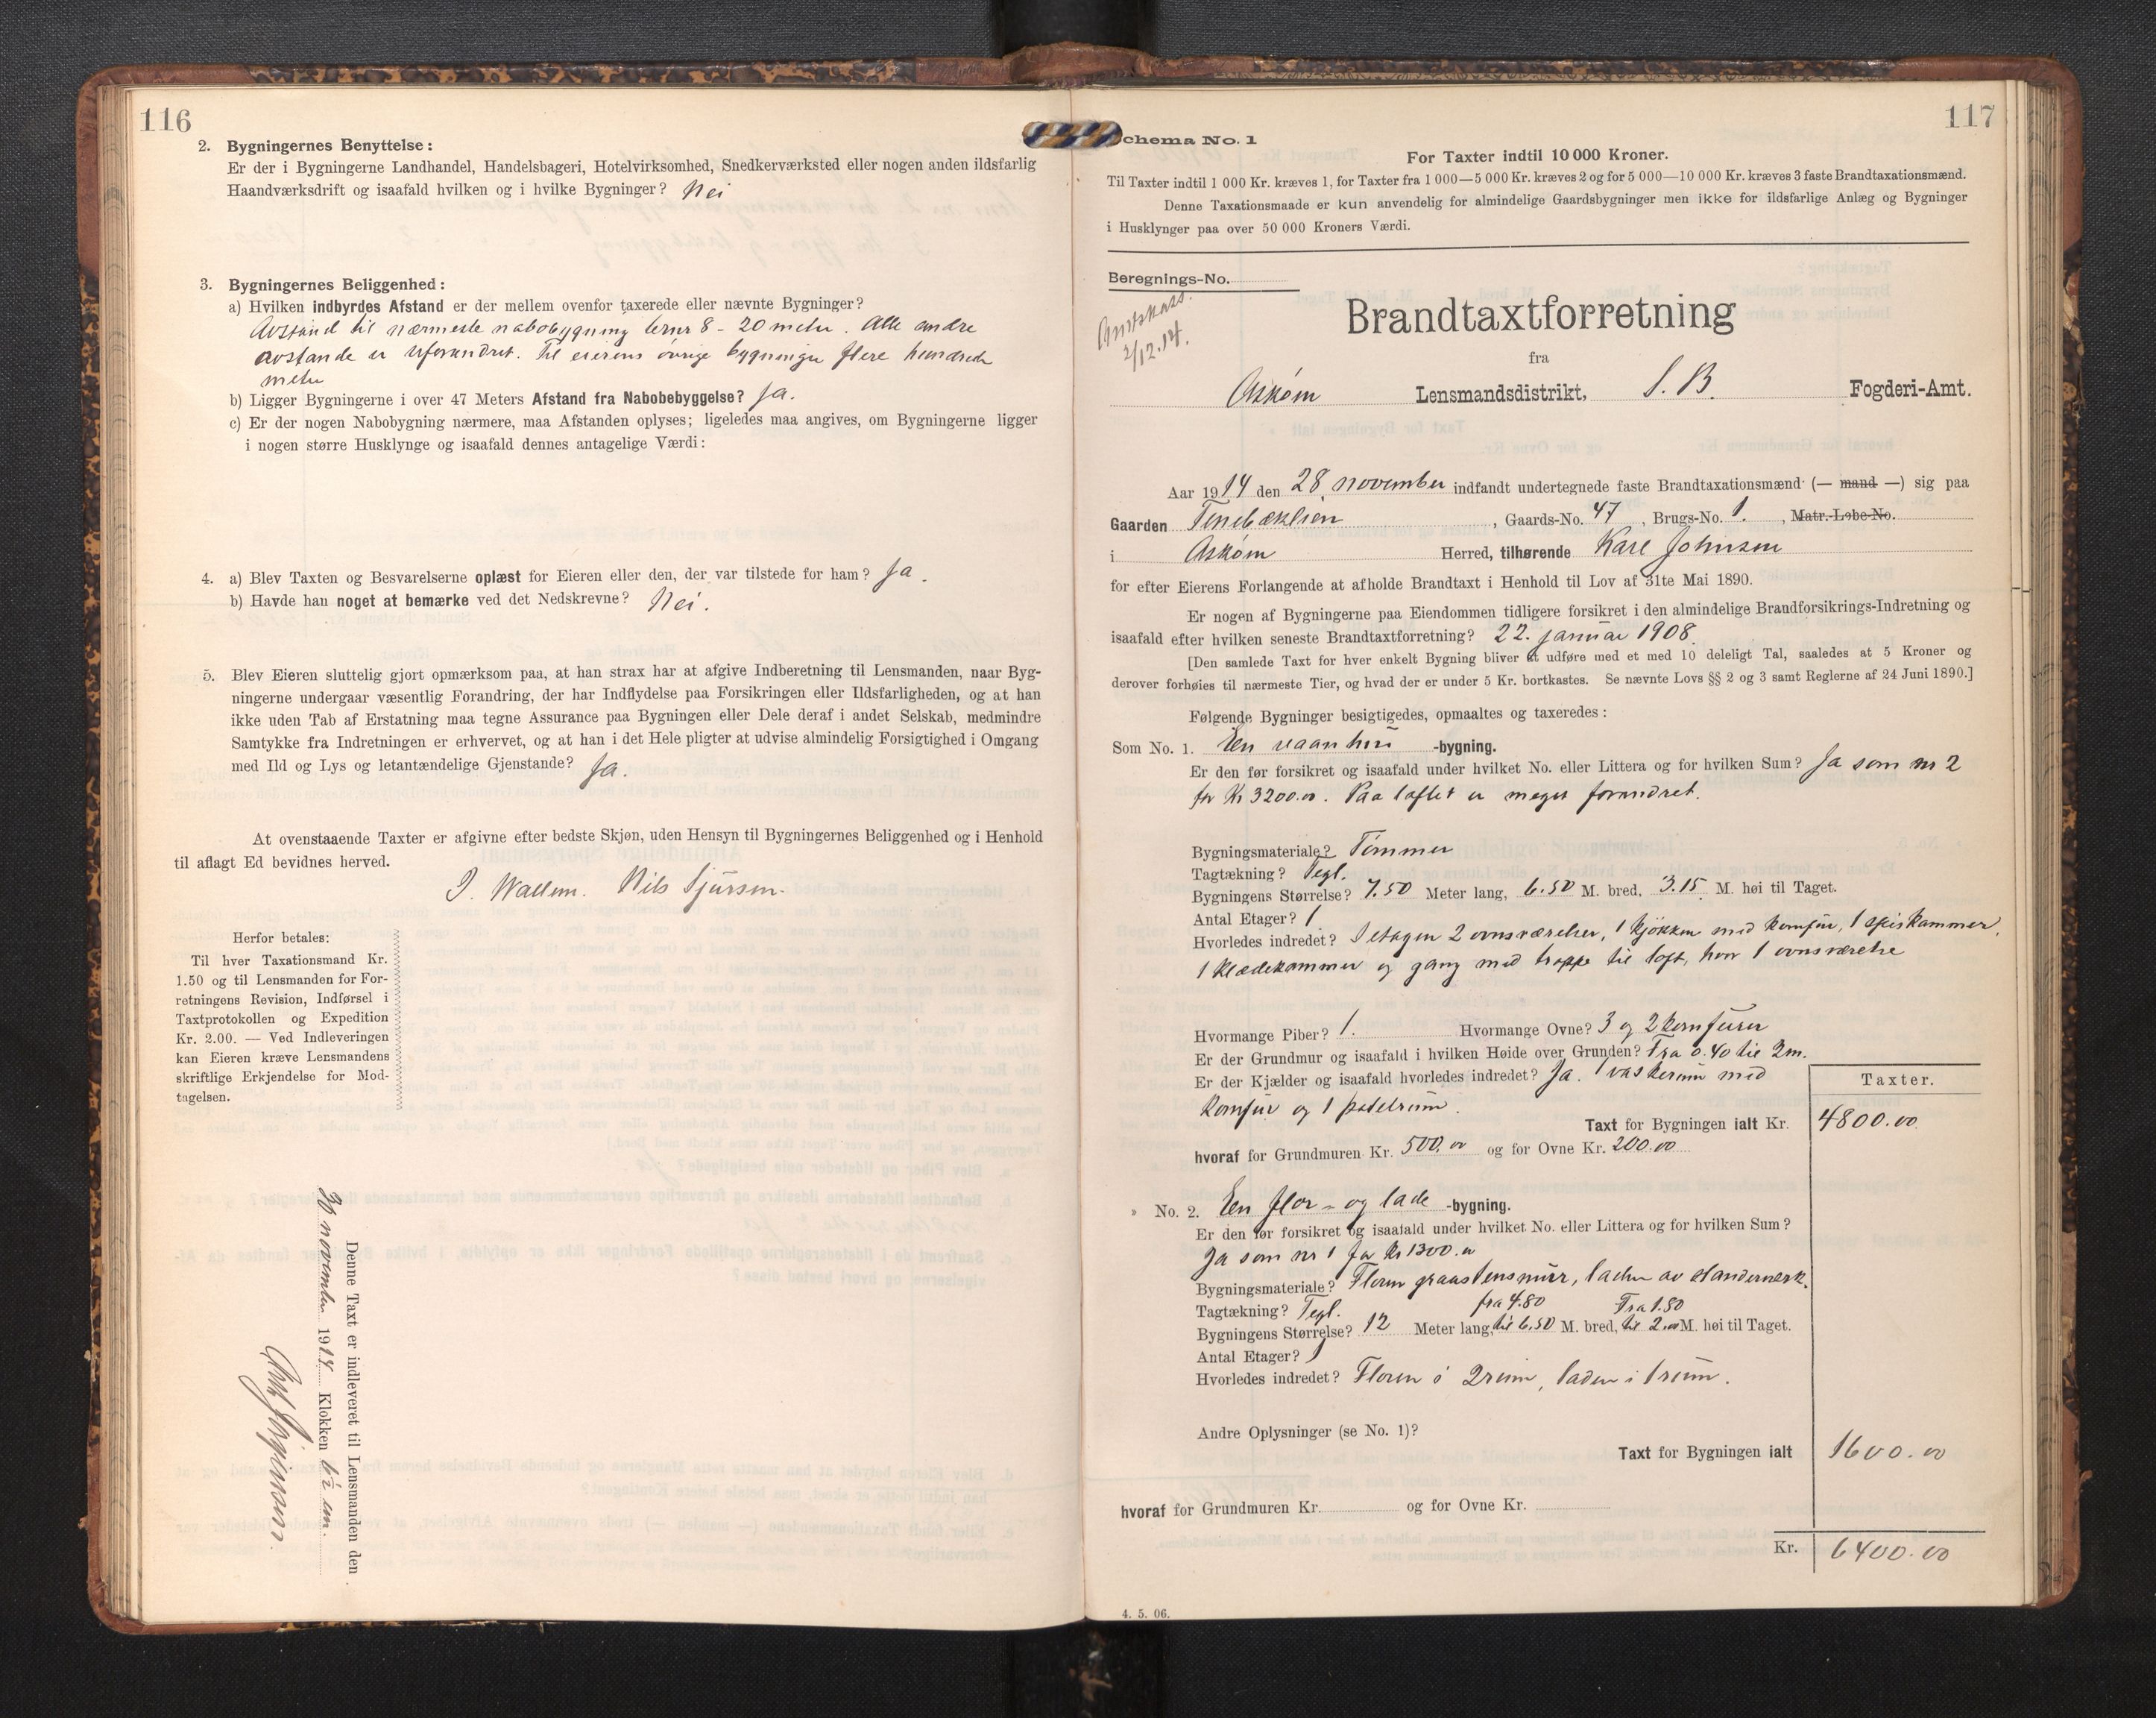 116
2. Bygningernes Benyttelse:
Er der i Bygningerne Landhandel, Handelsbageri, Hotelvirksomhed, Snedkerværksted eller nogen anden ildsfarlig
Haandværksdrift og isaafald hvilken og i hvilke Bygninger? Nei
3. Bygningernes Beliggenhed:
a) Hvilken indbyrdes Afstand er der mellem ovenfor taxerede eller nævnte Bygninger?
Avstand til nærmeste nabobygning 8 - 20 meter. Alle andre
avstande er uforandret. Til eierens øvrige bygninger flere hundrede
meter
b) Ligger Bygningerne i over 47 Meters Afstand fra Nabobebyggelse? Ja.
c) Er der nogen Nabobygning nærmere, maa Afstanden oplyses; ligeledes maa angives, om Bygningerne ligger
i nogen større Husklynge og isaafald dennes antagelige Værdi:
4. a) Blev Taxten og Besvarelserne oplæst for Eieren eller den, der var tilstede for ham? Ja.
b) Havde han noget at bemærke ved det Nedskrevne? Nei.
5. Blev Eieren sluttelig gjort opmærksom paa, at han strax har at afgive Indberetning til Lensmanden, naar Byg-
ningerne undergaar væsentlig Forandring, der har Indflydelse paa Forsikringen eller Ildsfarligheden, og at han
ikke uden Tab af Erstatning maa tegne Assurance paa Bygningen eller Dele deraf i andet Selskab, medmindre
Samtykke fra Indretningen er erhvervet, og at han i det Hele pligter at udvise almindelig Forsigtighed i Omgang
med Ild og Lys og letantændelige Gjenstande? Ja.
At ovenstaaende Taxter er afgivne efter bedste Skjøn, uden Hensyn til Bygningernes Beliggenhed og i Henhold
til aflagt Ed bevidnes herved.
J. Wallem. Nils Sjursen.
Herfor betales:
Til hver Taxationsmand Kr.
1.50 og til Lensmanden for For-
retningens Revision, Indførsel i
Taxtprotokollen og Expedition
Kr. 2.00. — Ved Indleveringen
kan Eieren kræve Lensmandens
skriftlige Erkjendelse for Mod-
tagelsen.
Denne Taxt er indleveret til Lensmanden den
30 november 1914 Klokken
117
chema No. 1
For Taxter indtil 10 000 Kroner.
Til Taxter indtil 1 000 Kr. kræves 1, for Taxter fra 1 000—5 000 Kr. kræves 2 og for 5 000—10 000 Kr. kræves 3 faste Brandtaxationsmænd.
Denne Taxationsmaade er kun anvendelig for almindelige Gaardsbygninger men ikke for ildsfarlige Anlæg og Bygninger
i Husklynger paa over 50 000 Kroners Værdi.
Beregnings-No.
2/12.14.
Brandtaxtforretning
fra
Askøen Lensmandsdistrikt, S. B. Fogderi-Amt.
Aar 1914 den 28. november indfandt undertegnede faste Brandtaxationsmænd (— mand —) sig paa
Gaarden Tenebæklien, Gaards-No. 47, Brugs-No. 1., Matr.-Løbe-No.
i Askøen Herred, tilhørende Karl Johnsen
for efter Eierens Forlangende at afholde Brandtaxt i Henhold til Lov af 31te Mai 1890.
Er nogen af Bygningerne paa Eiendommen tidligere forsikret i den almindelige Brandforsikrings-Indretning og
isaafald efter hvilken seneste Brandtaxtforretning? 22. januar 1908.
[Den samlede Taxt for hver enkelt Bygning bliver at udføre med et med 10 deleligt Tal, saaledes at 5 Kroner og
derover forhøies til nærmeste Tier, og hvad der er under 5 Kr. bortkastes. Se nævnte Lovs §§ 2 og 3 samt Reglerne af 24 Juni 1890.]
Følgende Bygninger besigtigedes, opmaaltes og taxeredes:
Som No. 1. En vaanhus -bygning.
Er den før forsikret og isaafald under hvilket No. eller Littera og for hvilken Sum? Ja som nr 2
for Kr 3200.00. Paa loftet er meget forandret.
Bygningsmateriale? Tømmer
Tagtækning? Tegl.
Bygningens Størrelse? 7.50 Meter lang, 6.50 M. bred, 3.15 M. høi til Taget.
Antal Etager? 1
Hvorledes indredet? I etagen 2 ovnsværelser, 1 kjøkken med komfur, 1 spiskammer,
1 klædekammer og gang med trappe til loft, hvor 1 ovnsværelse
Hvormange Piber? 1. Hvormange Ovne? 3 og 2 komfurer
Er der Grundmur og isaafald i hvilken Høide over Grunden? Fra 0.40 til 2m.
Er der Kjælder og isaafald hvorledes indredet? Ja. 1 vaskerum med
komfur og 1 potetrum.
Taxter.
Taxt for Bygningen ialt Kr. 4800.00
hvoraf for Grundmuren Kr. 500.00 og for Ovne Kr. 200.00
» No. 2. En flor- og lade -bygning.
Er den før forsikret og isaafald under hvilket No. eller Littera og for hvilken Sum?
Ja som nr 1 for Kr 1300.00
Bygningsmateriale? Floren graastensmur, laden av standerværk.
Tagtækning? Tegl. fra 4.80 Fra 1.50
Bygningens Størrelse? 12 Meter lang, til 6.50 M. bred, til 2.00 M. høi til Taget.
Antal Etager? 1
Hvorledes indredet? Floren i 2 rum, laden i 1 rum.
Andre Oplysninger (se No. 1)?
Taxt for Bygningen ialt 1600.00
hvoraf for Grundmuren Kr. og for Ovne Kr.
Kr. 6400.00
4. 5. 06.